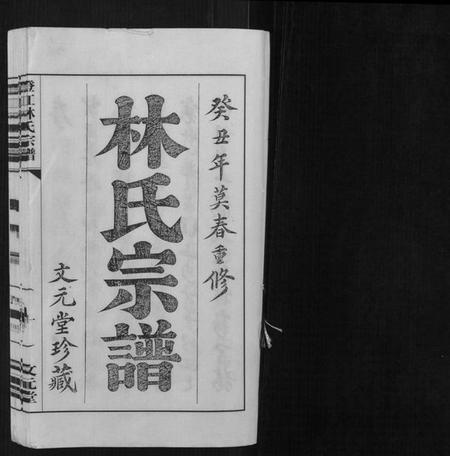 癸丑年莫春重修
林氏宗譜
文元堂珍藏
澄江林氏宗譜
文元堂